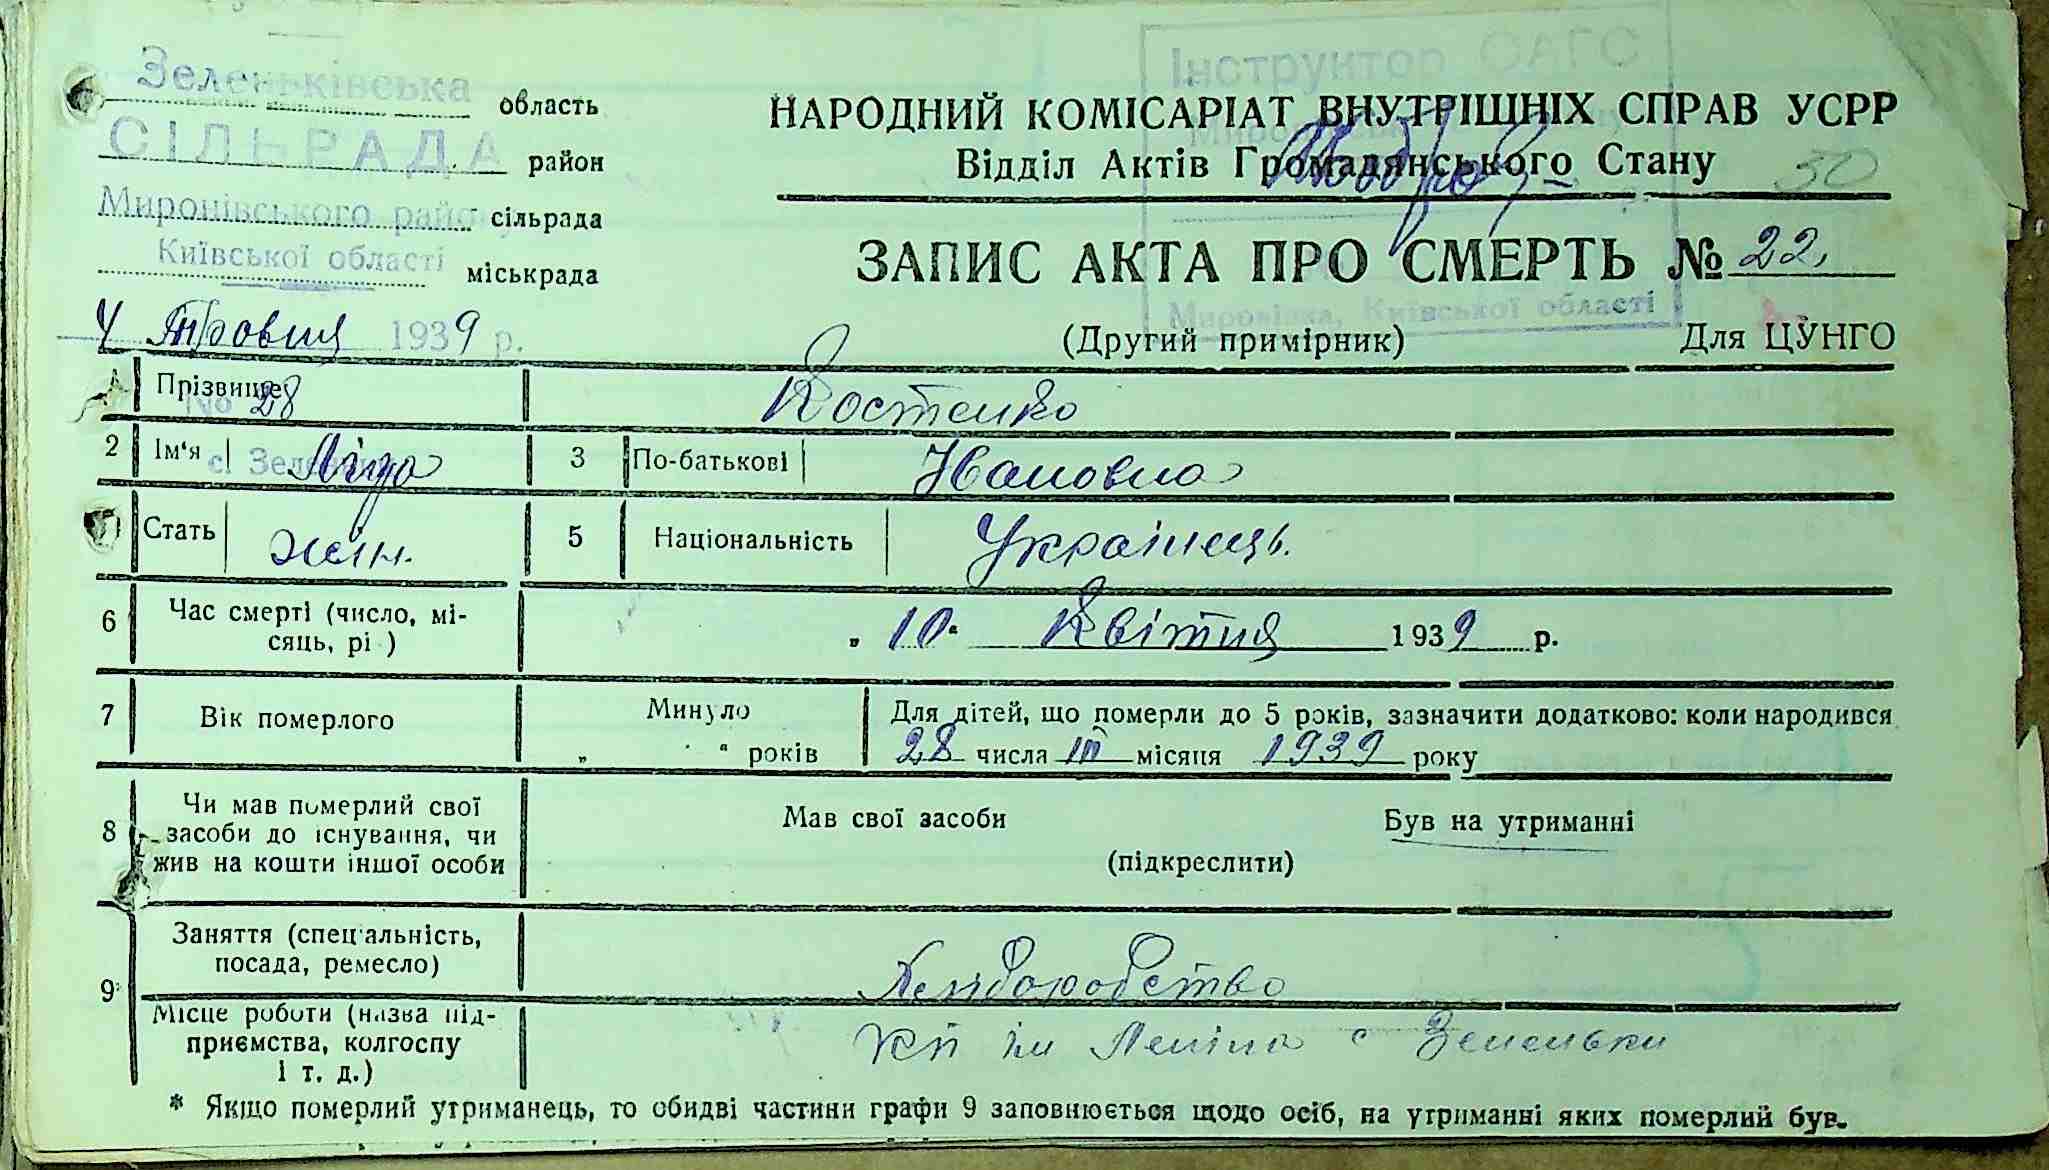 Зеленьківська область
СІЛЬРАДА район
Миронівського району сільрада
Київської області міськрада
4 Травня 1939 р.
№ 28
с. Зеленьки
Інструктор ОАГС
Миронівка, Київської області
НАРОДНИЙ КОМІСАРІАТ ВНУТРІШНІХ СПРАВ УСРР
Відділ Актів Громадянського Стану 30
ЗАПИС АКТА ПРО СМЕРТЬ № 22
(Другий примірник) Для ЦУНГО
Прізвище Костенко
2 Ім'я Ліда 3 По-батькові Івановна
Стать жін. 5 Національність Українець.
6 Час смерті (число, мі-
сяць, рі ) „ 10 " Квітня 1939 р.
7 Вік померлого Минуло Для дітей, що померли до 5 років, зазначити додатково: коли народився
„ " років 28 числа III місяця 1939 року
8 Чи мав померлий свої
засоби до існування, чи
жив на кошти іншої особи
Мав свої засоби Був на утриманні
(підкреслити)
9 Заняття (спеціальність,
посада, ремесло) Хліборобство
Місце роботи (назва під-
приємства, колгоспу
і т. д.) ім Леніна с Зеленьки
* Якщо померлий утриманець, то обидві частини графи 9 заповнюється щодо осіб, на утриманні яких померлий був.